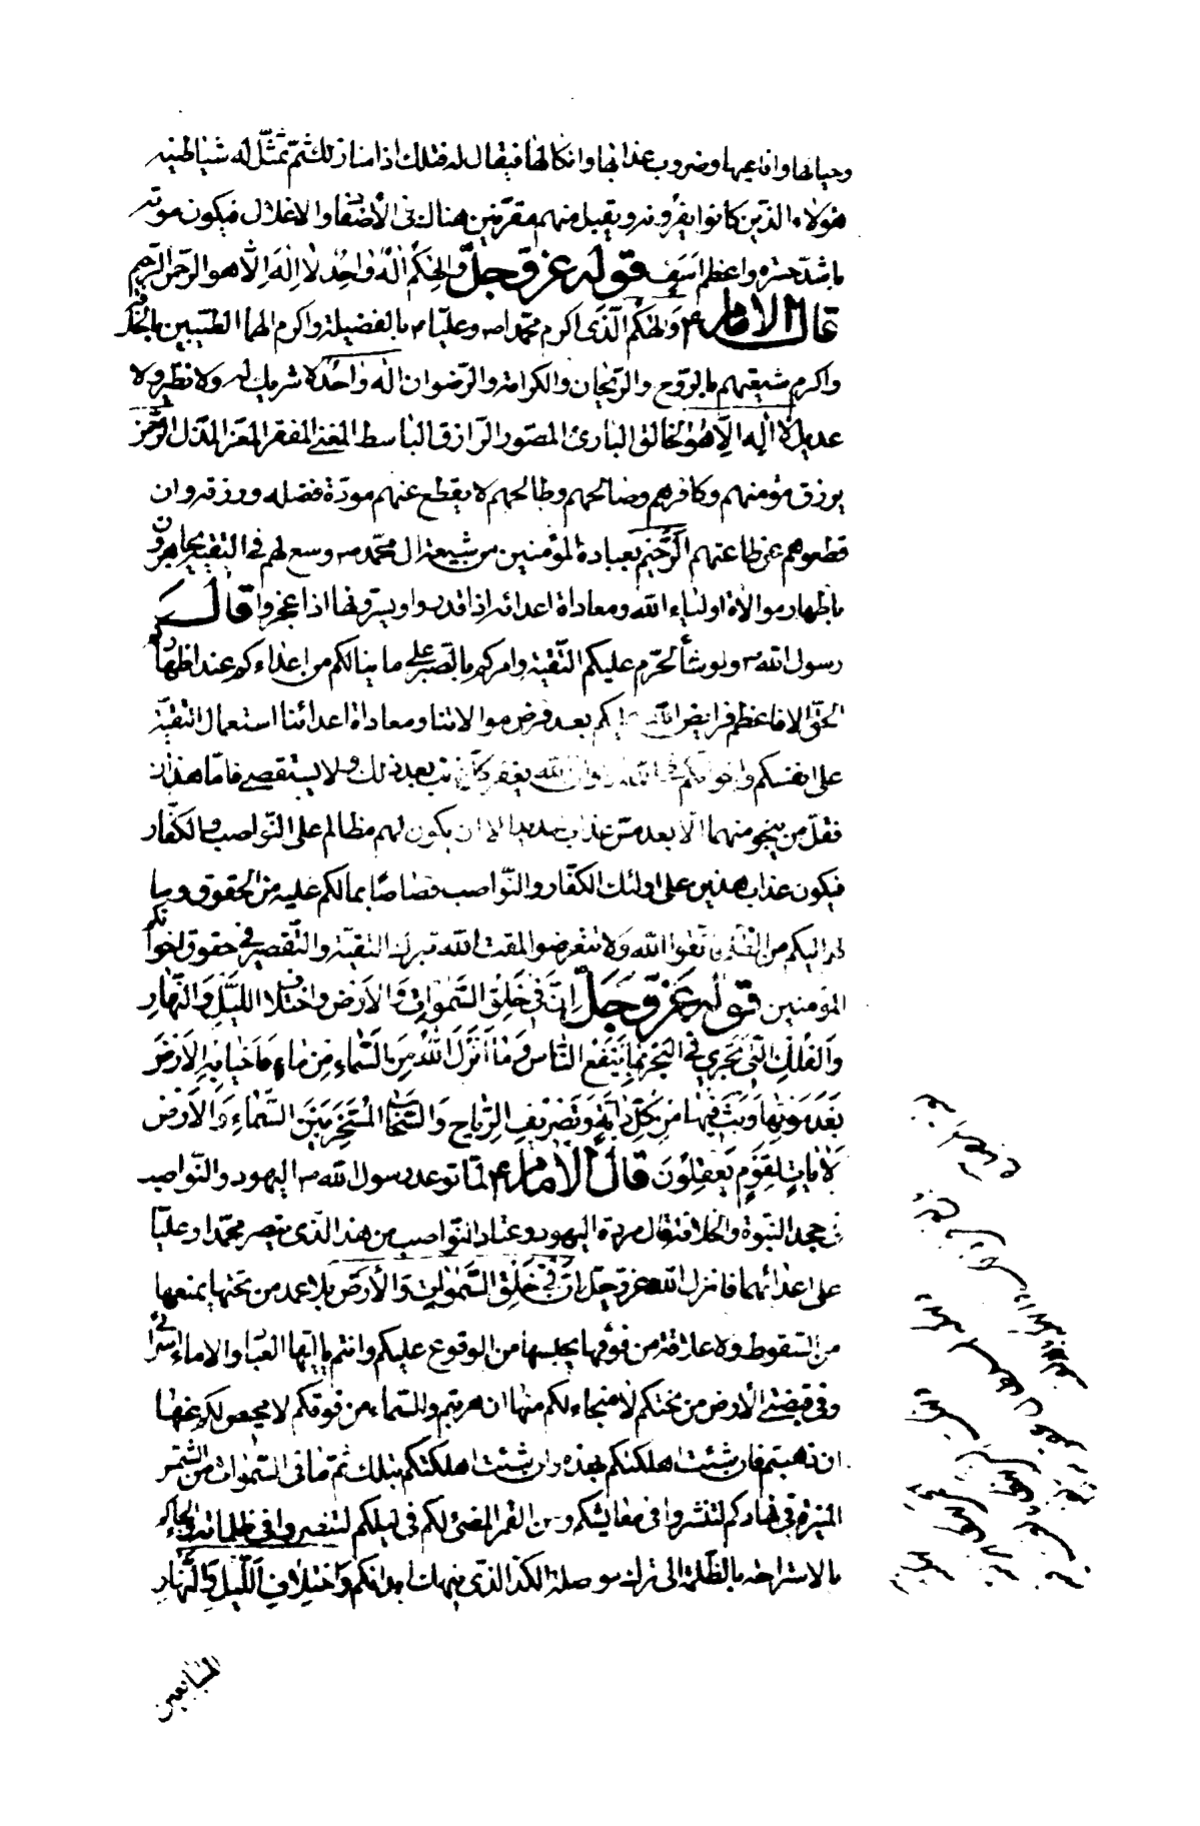 وحياتها وافاعيها وضروب عذابها وانكالها فيقال له فتلك اذا منازلك ثم تمثل له شياطينه
هؤلاء الذين كانوا يغرونه ويقبل منهم مقرنين هناك فى الأصفاد والاغلال فيكون موته
باشد حسرة واعظم اسف قوله عز وجل وَاِلٰهُكُمْ اِلٰهٌ وٰاحِدٌ لاٰ اِلٰهَ اِلاّٰ هو الرحمن الرحيم
قال الامام ع والهكم الذى اكرم محمدا ص وعليا ع بالفضيلة واكرم الهما الطيبين بالخلافة
واكرم شيعتهم بالروح والريحان والكرامة والرضوان اله واحد لا شريك له ولا نظير ولا
عديل لا اله الا هو الخالق البارئ المصور الرازق الباسط المغنى المفقر المعز المذل الرحمن
يرزق مؤمنهم وكافرهم وصالحهم وطالحهم لا يقطع عنهم مودة فضله ورزقه وان
قطعوهم عن طاعتهم الرحيم بعباده المؤمنين من شيعة ال محمد ص وسع لهم فى التقية يجاهرون
باظهار موالاة اولياء الله ومعاداة اعدائه اذا قدروا ويسترونها اذا عجزوا قال
رسول الله ص ولو شاء لحرم عليكم التقية وامركم بالصبر على ما ينالكم من اعداءكم عند اظهاركم
الحق الا فاعظم فرايض الله عليكم بعد فرض موالاتنا ومعاداة اعدائنا استعمال التقية
على انفسكم واخوانكم وان الله يغفر كل ذنب بعد ذلك ولا يستقصى فاما هذان
فقل من ينجو منهما الا بعد مس عذاب شديد الا ان يكون لهم مظالم على النواصب والكفار
فيكون عذاب هذين على اولئك الكفار والنواصب قصاصا بما لكم عليهم من الحقوق وما
لهم اليكم من الظلم فاتقوا الله ولا تتعرضوا لمقت الله بترك التقية والتقصير فى حقوق اخوانكم
المؤمنين قوله عَزَّ وَجَلَّ اِنَّ فِى خَلْقِ السَّمٰوٰاتِ وَالاَرْضِ وَاخْتِلاٰفِ اللَّيْلِ وَالنَّهٰارِ
وَالْفُلْكِ الَّتِى تَجْرِى فِى الْبَحْرِ بِمٰا يَنْفَعُ النّٰاسَ وَمٰا اَنْزَلَ اللّٰهُ مِنَ السَّمٰاءِ مِنْ مٰاءٍ فَاَحْيٰا بِهِ الاَرْضَ
بَعْدَ مَوْتِهٰا وَبَثَّ فِيهٰا مِنْ كُلِّ دٰابَّةٍ وَتَصْرِيفِ الرِّيٰاحِ وَالسَّحٰابِ الْمُسَخَّرِ بَيْنَ السَّمٰاءِ وَالاَرْضِ
لَاٰيٰاتٍ لِقَوْمٍ يَعْقِلُونَ قال الامام ع لما توعد رسول الله ص اليهود والنواصب
فى جحد النبوة والخلافة قال مردة اليهود وعتاة النواصب من هذا الذى ينصر محمدا وعليا
على اعدائهما فانزل الله عز وجل ان فى خلق السموات والأرض بلا عمد من تحتها يمنعها
من السقوط ولا علاقة من فوقها يحبسها من الوقوع عليكم وانتم يا ايها العباد والاماء اسراى
وفى قبضتى الأرض من تحتكم لا منجاء لكم منها ان هربتم والسماء من فوقكم لا محيص لكم عنها
ان ذهبتم فان شئت اهلكتكم بهذه وان شئت اهلكتكم بتلك ثم ما فى السموات من الشمس
المنيرة فى نهاركم لتنتشروا فى معائشكم ومن القمر المضئ لكم فى ليلكم لتبصروا فى ظلماته والجاؤكم
بالاستراحة بالظلمة الى ترك مواصلة الكد الذى ينهك ابدانكم وَاخْتِلاٰفِ اللَّيْلِ وَالنَّهٰارِ